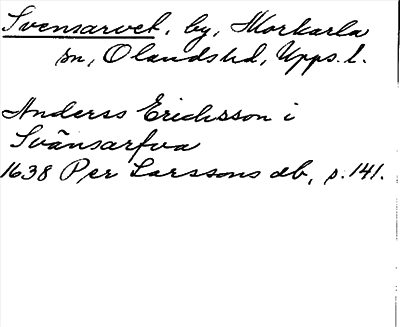 Svensarvet, by, Morkarla
sn, Olandshd, Upps. l.
Anderss Ericksson i
Svänsarfva
1638 Per Larssons db, p. 141.